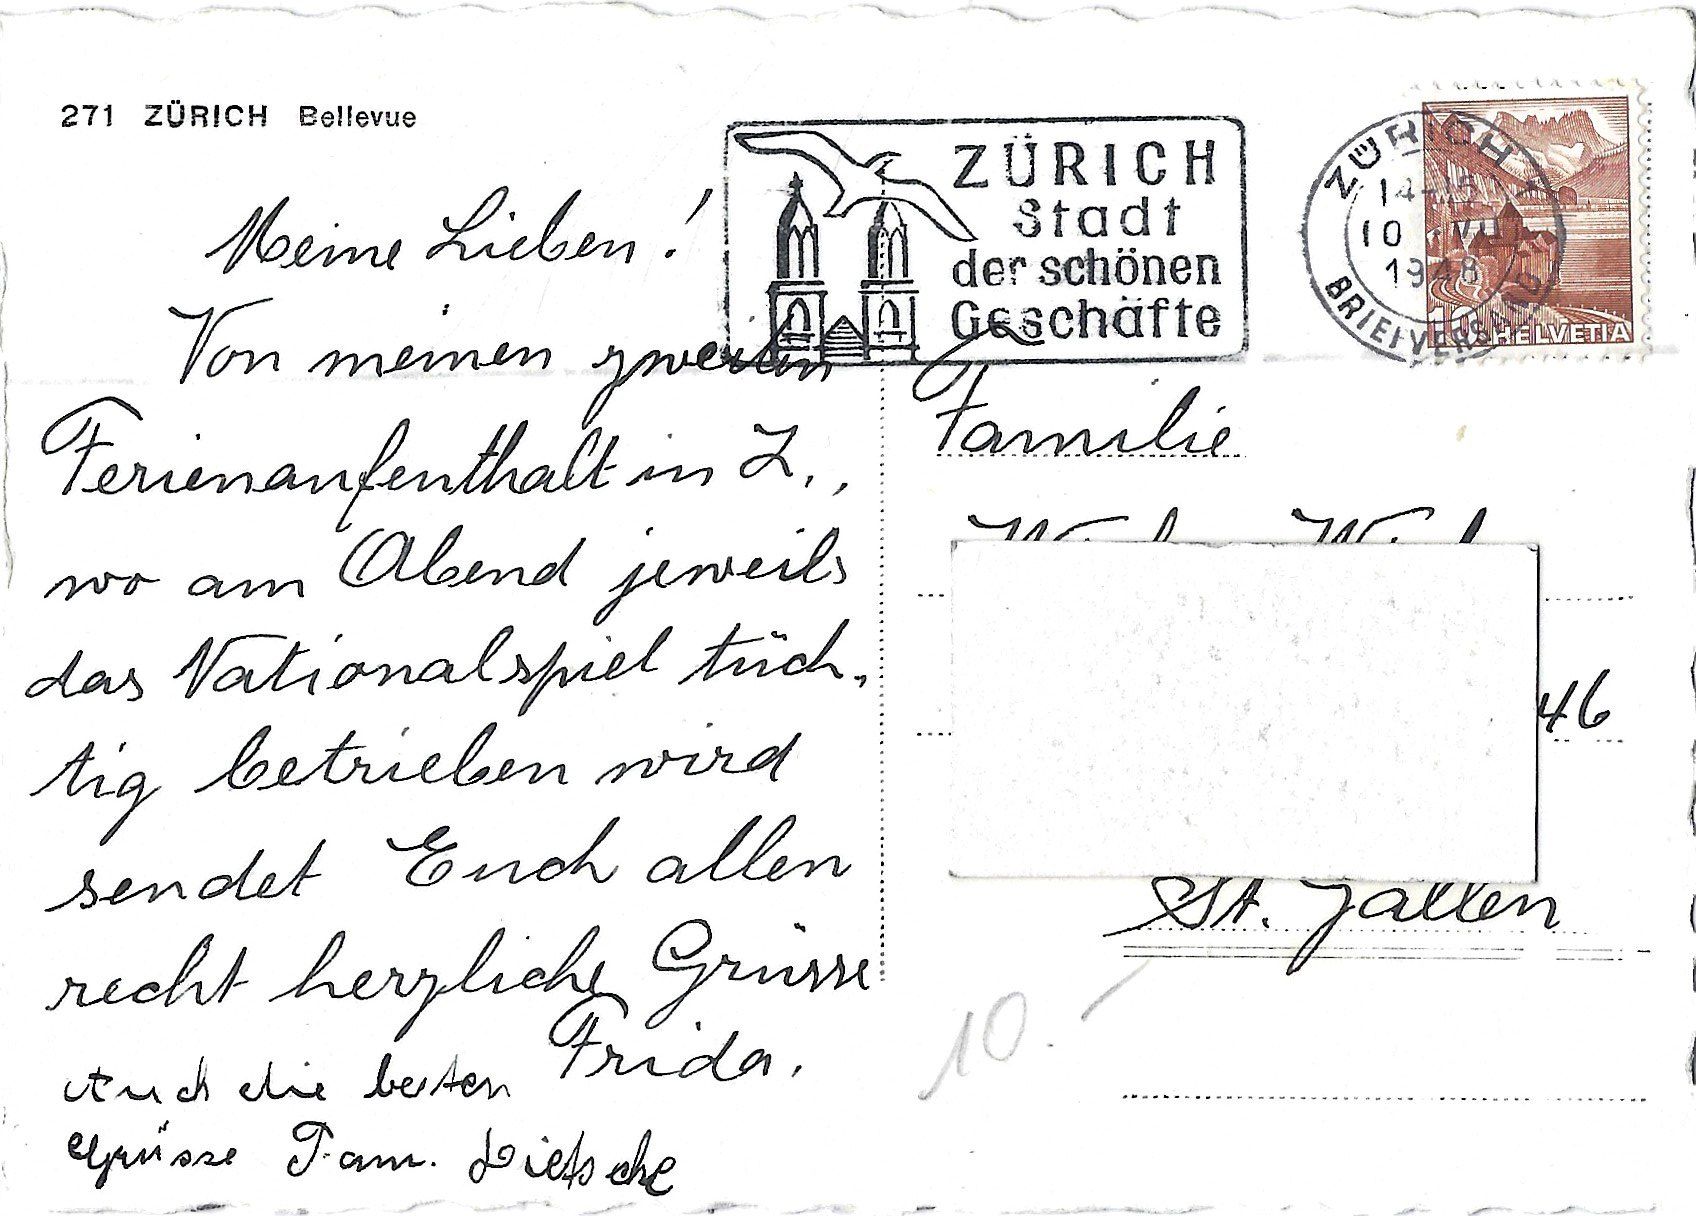 271 ZÜRICH Bellevue
ZÜRICH
Stadt
der schönen
Geschäfte
ZÜRICH
14-15
10. VII
1948
BRIEFVERSAND
10 HELVETIA
Meine Lieben!
Von meinen zweiten
Ferienaufenthalt in Z.,
wo am Abend jeweils
das Nationalspiel tüch-
tig betrieben wird
sendet Euch allen
recht herzliche Grüsse
Frida.
Auch die besten
Grüsse Fam. Lietsche
Familie
46
St. Gallen
10.-